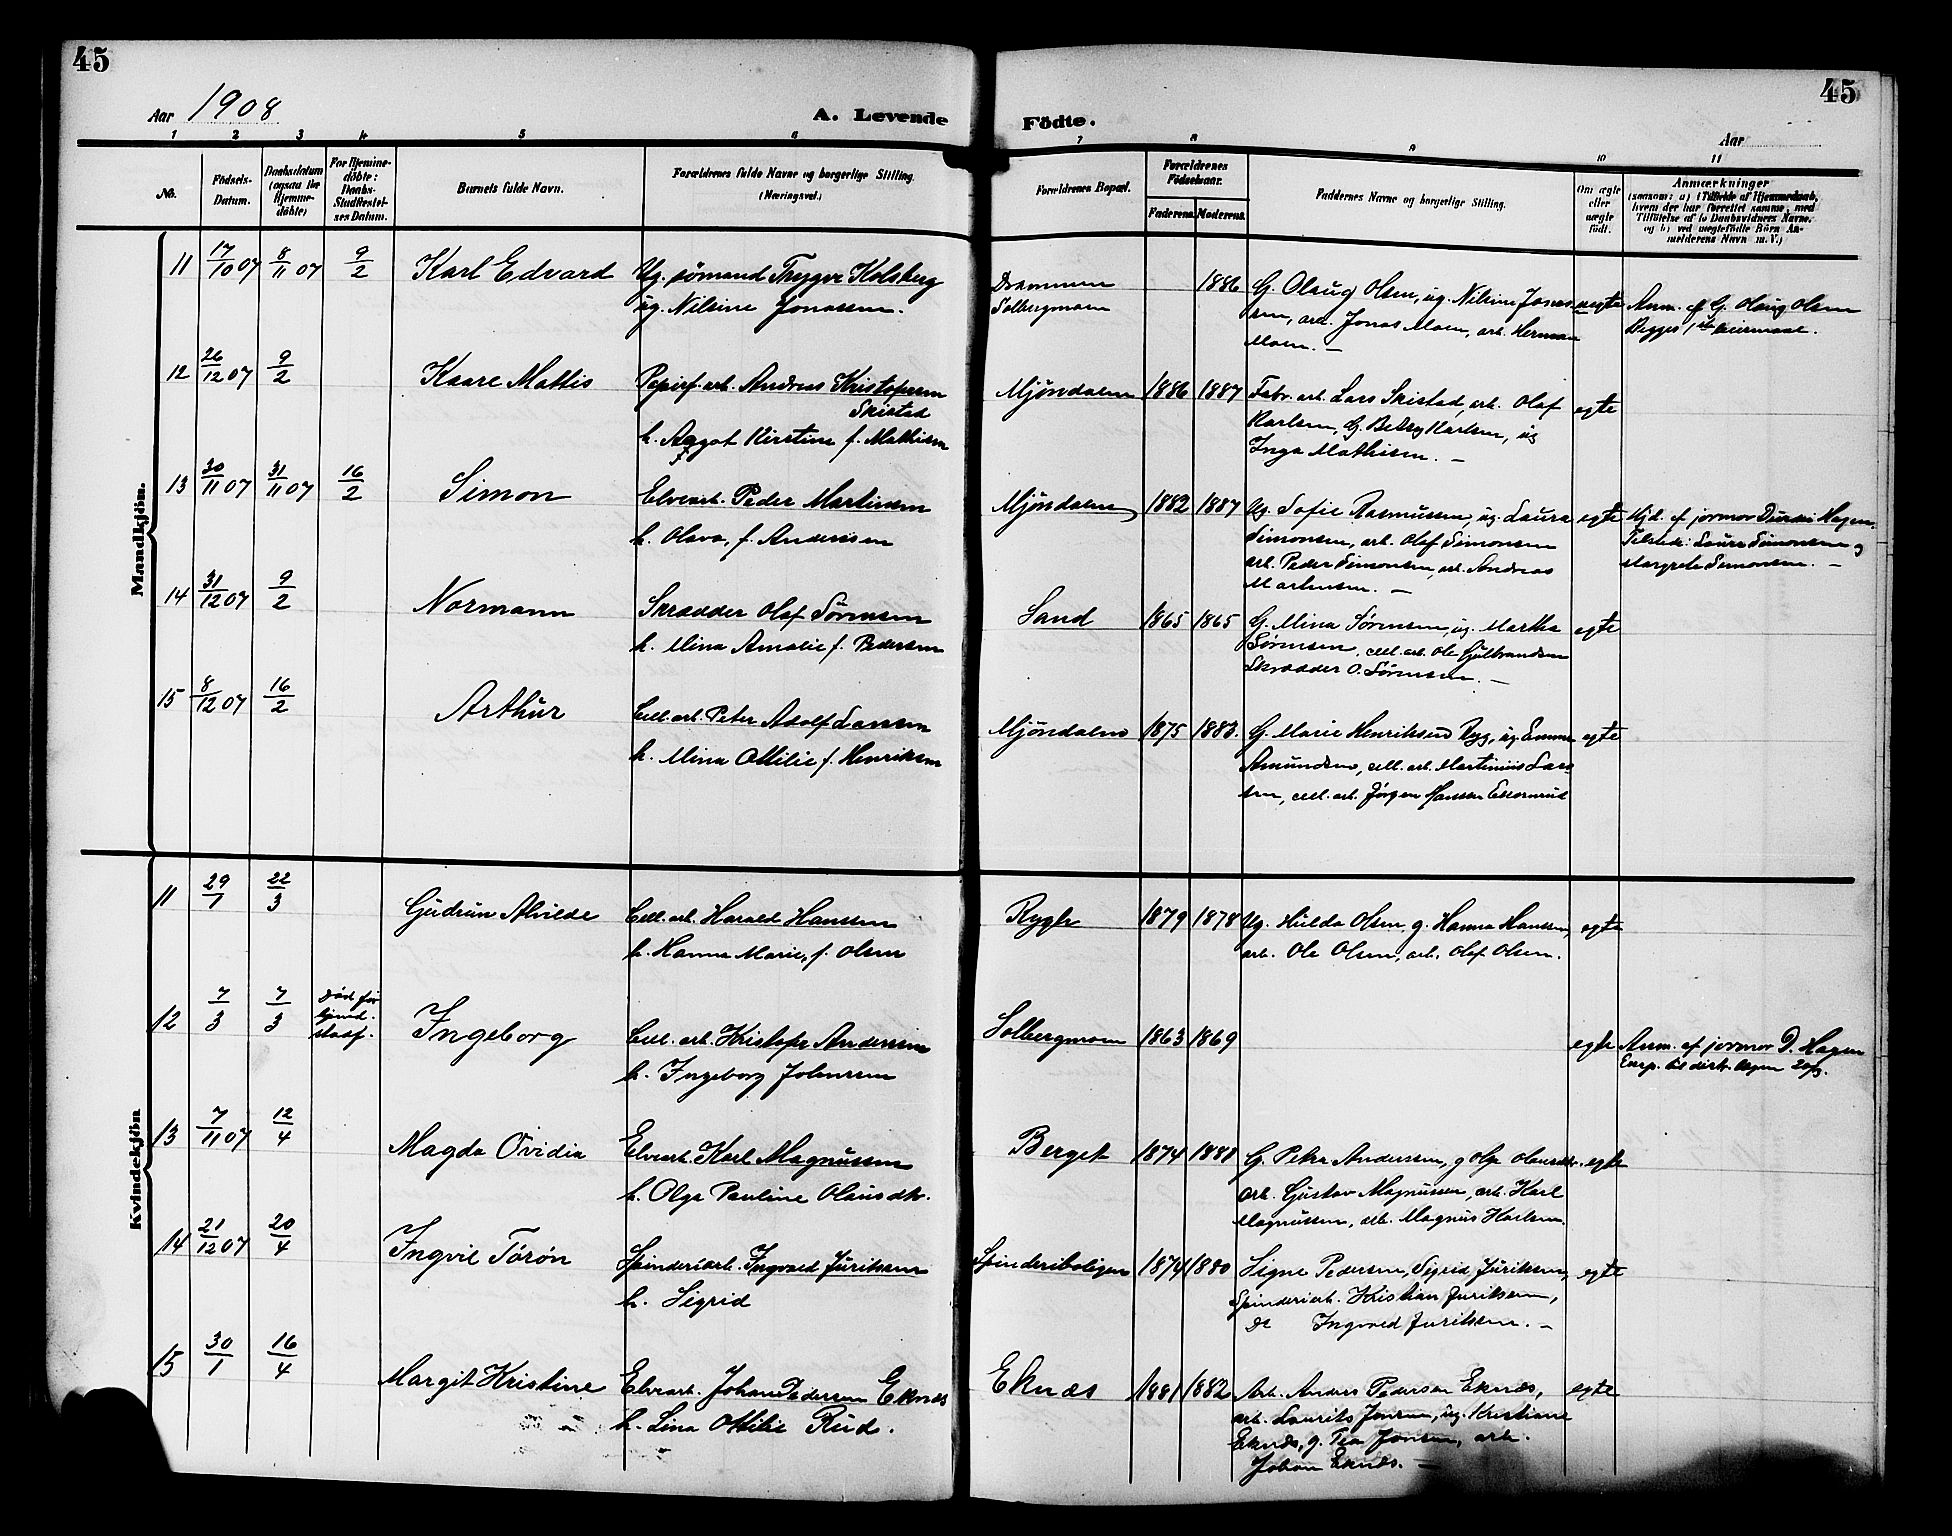 45
45
Aar 1908
A. Levende Födte.
Aar
1 2 3 4 5 6 7 8 9 10 11
No.
Födsels-Datum.
Daabsdatum (ogsaa for Hjemme-döbte)
For Hjemme-döbte: Daabs-Stadfæstel-ses Datum.
Barnets fulde Navn.
Forældrenes fulde Navne og borgerlige Stilling. (Næringsvei.)
Forældrenes Bopæl.
Forældrenes Födselsaar.
Faderens. Moderens.
Faddernes Navne og borgerlige Stilling.
Om ægte eller uægte födt.
Anmærkninger
(saasom: a) (Tilfælde af Hjemmedaab,
hvem der har forrettet samme, med
Tilföielse af to Daabsvidners Navne,
og b) ved uægtefödte Börn An-
melderens Navn m. V.)
Mandkjön.
11 17/10 07 8/11 07 9/2 Karl Edvard
Ug. sömand Trygve Kolsberg
ug. Nilsine Jonassen.
Drammen
Solbergmoen
1886
G. Olaug Olsen, ug. Nilsine Jonas
sen, arb. Jonas Moen, arb. Herman
Moen. —
uegte
Anm. af G. Olaug Olsen
Begges 1ste leiermaal.
12 26/12 07 9/2 Kaare Mattis
Papirf. arb. Andreas Kristofersen
Skistad
h. Aagot Kirstine f. Mathisen
Mjöndalen 1886 1887
Fabr. arb. Lars Skistad, arb. Olaf
Karlsen, G. Betsy Karlsen, ug
Inga Mathisen. —
egte
13 30/11 07 31/11 07 16/2 Simon
Elvearb. Peder Martinsen
h. Olava, f. Andersen
Mjöndalen 1882 1887
Ug. Sofie Rasmussen, ug. Laura
Simonsen, arb. Olaf Simonsen
arb. Peder Simonsen, arb. Andreas
Martinsen. —
egte
Hjd. af jormor Hagen.
Tilstede: Laura Simonsen og
Margrete Simonsen. —
14 31/12 07 9/2 Normann
Skrædder Olaf Sörensen
h. Mina Amalie f. Pedersen
Sand 1865 1865
G. Mina Sörensen, ug. Martha
Sörensen, cell. arb. Ole Gulbrandsen
Skrædder O. Sörensen. —
egte
15 8/12 07 16/2 Arthur
Cell. arb. Peter Adolf Larsen
h. Mina Ottilie f. Henriksen
Mjöndalen 1875 1883.
G. Marie Henriksen Ryg, ug Emma
Amundsen, cell. arb. Martinius Lar-
sen, cell. arb. Jörgen Hansen
egte
Kvindekjön
11 29/1 22/3 Gudrun Alvilde
Cell. arb. Harald Hanssen
h. Hanna Marie, f. Olsen
Rygh 1879 1878
Ug. Hulda Olsen, g. Hanna Hanssen,
arb. Ole Olsen, arb. Olaf Olsen.
egte
12 7/3 7/3
Död för
stadf.
Ingeborg
Cell. arb. Kristofer Andersen
h. Ingeborg Johnssen
Solbergmoen 1863 1869
egte
Anm. af jormor D. Hagen
13 7/11 07 12/4 Magda Ovidia
Elvearb. Karl Magnussen
h. Olga Pauline Olausdtr.
Berget 1874 1888
G. Petra Anderssen, g Olga Olausdtr.
arb. Gustav Magnussen, arb. Karl
Magnussen, arb. Magnus Karlsen.
egte
14 21/12 07 20/4 Ingvil Törön
Spinderiarb. Ingvald Juriksen
h. Sigrid
Spinderiboligen 1874 1880
Signe Pedersen, Sigrid Juriksen,
Spinderiarb. Kristian Juriksen,
Do Ingvald Juriksen. —
egte
15 30/1 16/4 Margit Kristine
Elvearb. Johan Pedersen Eknæs
h. Lina Ottilie Rud.
Eknæs 1881 1882
Arb. Anders Pedersen Eknæs,
arb. Laurits Jonsen, ug. Kristiane
Eknæs, g. Tea Jonsen, arb.
Johan Eknæs. —
egte